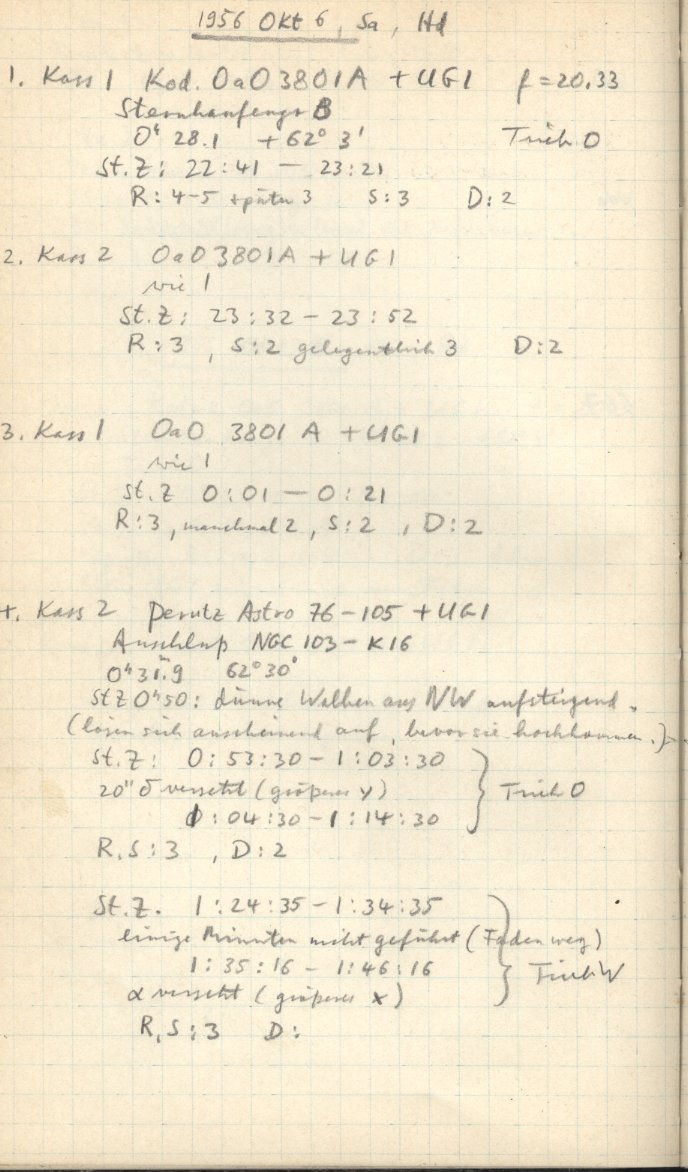 1956 Okt 6, Sa, Hd
1. Kass 1 Kod. OaO 3801A + UG1 f = 20.33
Sternhaufengr B
0ʰ 28.1 + 62° 3' Trieb O
St.Z: 22:41 – 23:21
R: 4-5 später 3 S: 3 D: 2
2. Kass 2 OaO 3801A + UG1
wie 1
St.Z: 23:32 – 23:52
R: 3 , S: 2 gelegentlich 3 D: 2
3. Kass 1 OaO 3801 A + UG1
wie 1
St.Z 0:01 – 0:21
R: 3, manchmal 2, S: 2 , D: 2
4. Kass 2 Perutz Astro 76-105 + UG1
Anschluß NGC 103 – K16
0ʰ 31ᵐ.9 62° 30'
StZ 0ʰ50: dünne Wolken aus NW aufsteigend.
(lösen sich anscheinend auf, bevor sie hochkommen.)
St.Z: 0:53:30 – 1:03:30
20" δ versetzt (größeres y) Trieb O
1:04:30 – 1:14:30
R, S: 3 , D: 2
St.Z. 1:24:35 – 1:34:35
einige Minuten nicht geführt (Faden weg)
1:35:16 – 1:46:16 Trieb W
α versetzt (größeres x)
R, S: 3 D: